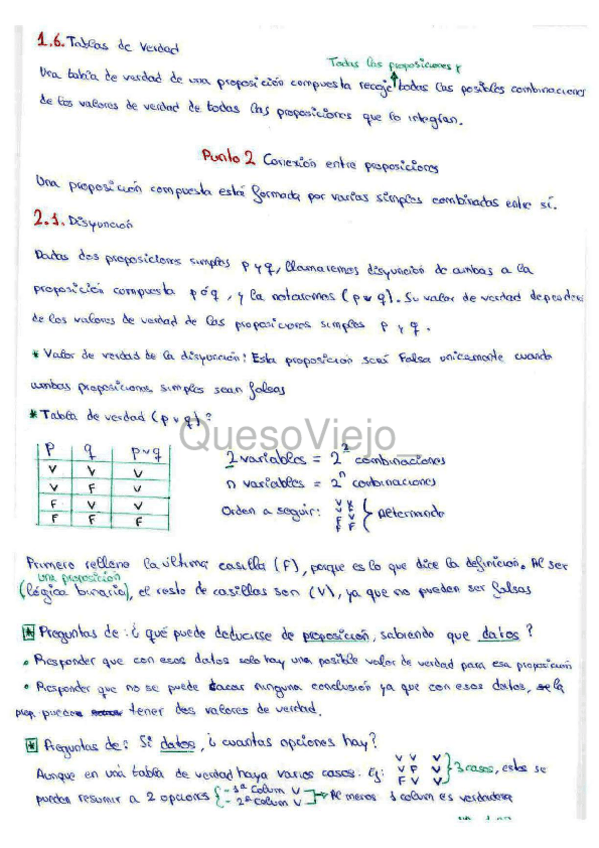 1.6. Tablas de Verdad
Todas las proposiciones y
Una tabla de verdad de una proposición compuesta recoje todas las posibles combinaciones
de los valores de verdad de todas las proposiciones que lo integran.
Punto 2 Conexión entre proposiciones
Una proposición compuesta está formada por varias simples combinadas entre sí.
2.1. Disyunción
Dadas dos proposiciones simples p y q, llamaremos disyunción de ambas a la
proposición compuesta p ó q, y la notaremos (p v q). Su valor de verdad depende
de los valores de verdad de las proposiciones simples p y q.
* Valor de verdad de la disyunción: Esta proposición será Falsa unicamente cuando
ambas proposiciones simples sean falsas
* Tabla de verdad (p v q)?
QuesoViejo_
p q p v q
V V V
V F V
F V V
F F F
2 variables = 2² combinaciones
n variables = 2ⁿ combinaciones
Orden a seguir: V V
V F
F V
F F
Alternando
Primero relleno la última casilla (F), porque es lo que dice la definición. Al ser
una proposición
(lógica binaria), el resto de casillas son (V), ya que no pueden ser falsas
* Preguntas de: ¿qué puede deducirse de proposición, sabiendo que datos?
• Responder que con esos datos solo hay una posible valor de verdad para esa proposición
• Responder que no se puede sacar ninguna conclusión ya que con esos datos, la
prop. puede tener dos valores de verdad.
* Preguntas de: Si datos, ¿cuantas opciones hay?
Aunque en una tabla de verdad haya varios casos. Ej: V V V
V F V
F V V
3 casos, estos se
pueden resumir a 2 opciones - 1ª Colum V
- 2ª Colum V
Al menos 1 colum es verdadera